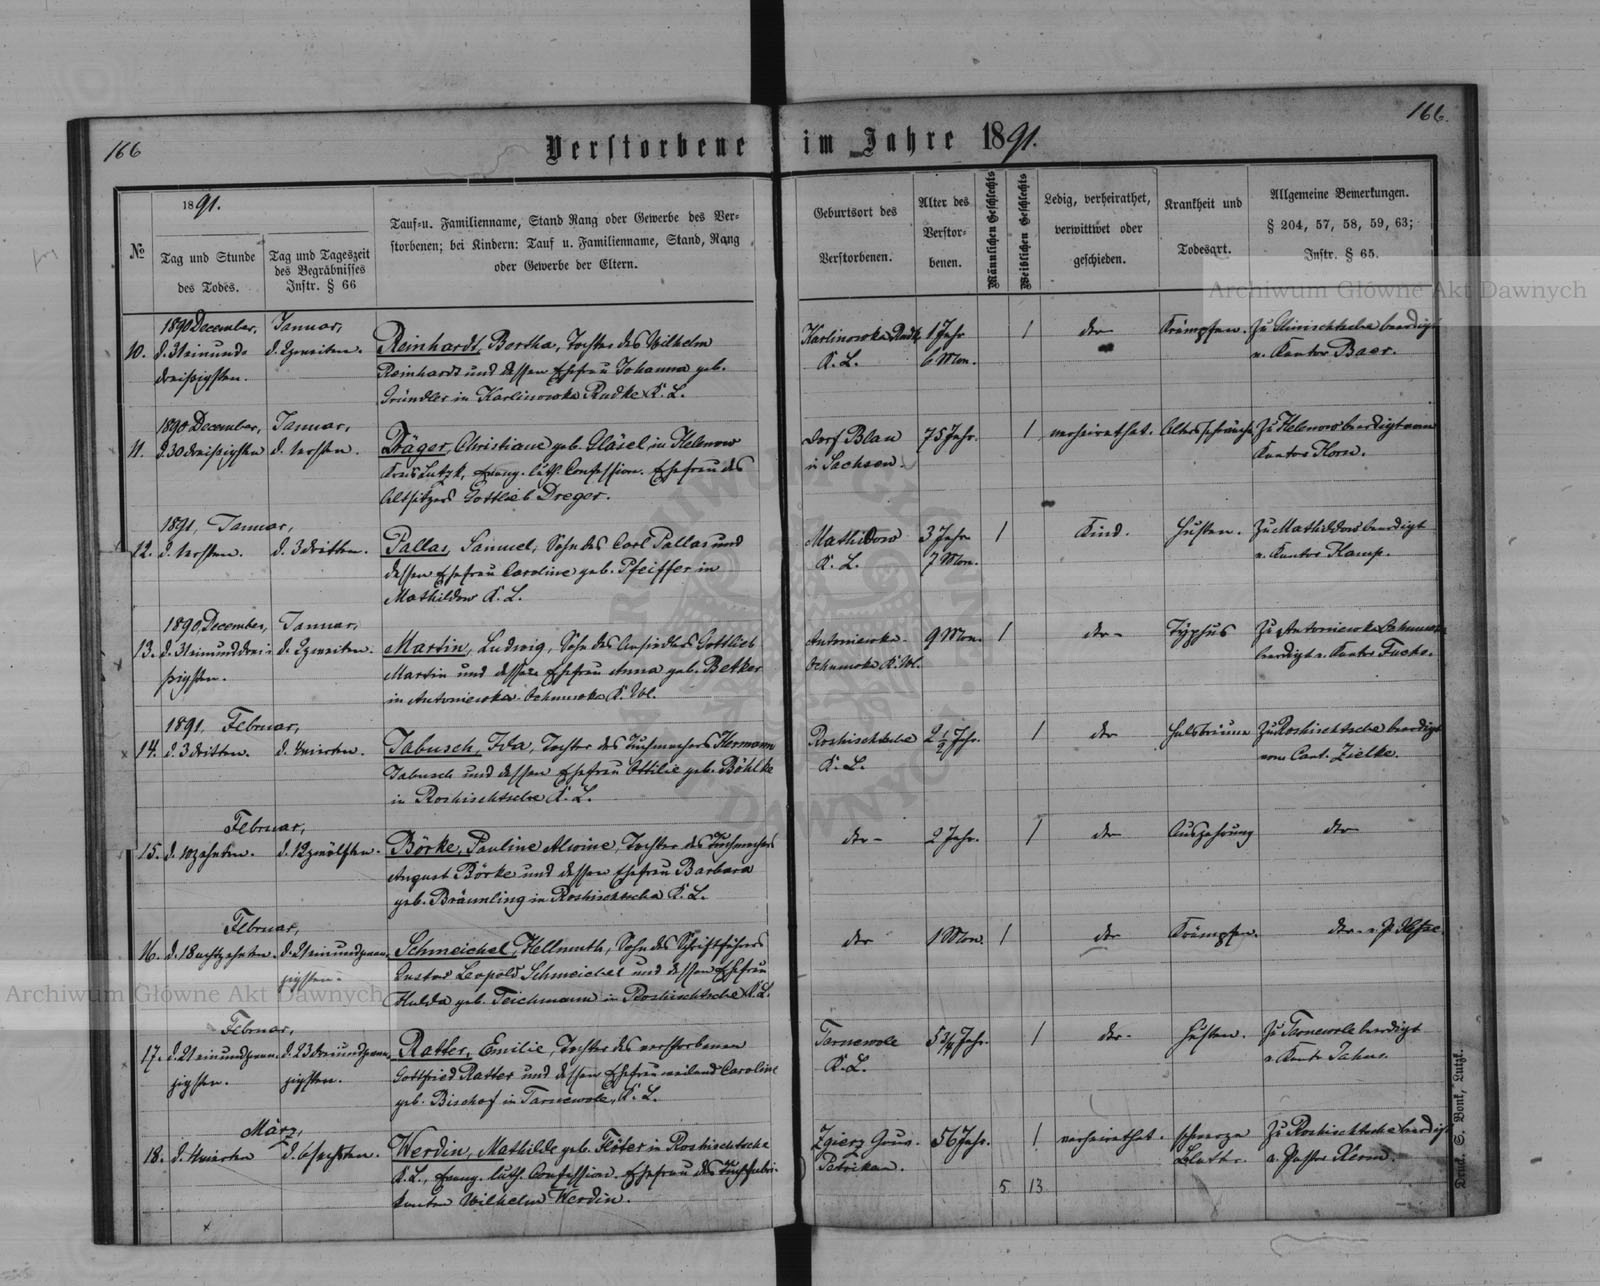 166
166.
Verstorbene im Jahre 1891.
№
1891.
Tag und Stunde
des Todes.
Tag und Tageszeit
des Begräbnisses
Instr. § 66
Tauf- u. Familienname, Stand Rang oder Gewerbe des Ver-
storbenen; bei Kindern: Tauf u. Familienname, Stand, Rang
oder Gewerbe der Eltern.
Geburtsort des
Verstorbenen.
Alter des
Verstor-
benen.
Männlichen Geschlechts
Weiblichen Geschlechts
Ledig, verheirathet,
verwittwet oder
geschieden.
Krankheit und
Todesart.
Allgemeine Bemerkungen.
§ 204, 57, 58, 59, 63;
Instr. § 65.
Archiwum Główne Akt Dawnych
1890 December, Januar,
10. d. 31 einund- d. 2 zweiten. Reinhardt, Bertha, Tochter des Wilhelm Karlinowka Rudke 1 Jahr 1 dto Krämpfen. Zu beerdigt
dreißigsten. Reinhardt und dessen Ehefrau Johanna geb. K. L. 6 Mon. v. Kantor Baer.
Gründler in Karlinowka Rudke K. L.
1890 December, Januar,
11. d. 30 dreißigsten d. 1 ersten. Dräger, Christiane geb. Gläsel in Helenow Dorf Blau 75 Jahr. 1 verheirathet. Altersschwäche Zu Helenow beerdigt vom
Kreis Lutzk, evang. luth. Confession. Ehefrau des in Sachsen. Kantor Horn.
Altsitzers Gottlieb Dreger.
1891, Januar,
12. d. 1 ersten. d. 3 dritten. Pallas, Samuel, Sohn des Carl Pallas und Mathildow 3 Jahr 1 Kind. Husten. Zu Mathildow beerdigt
dessen Ehefrau Caroline geb. Pfeiffer in K. L. 7 Mon. v. Kantor Kamp.
Mathildow K. L.
1890, December, Januar,
13. d. 31 einunddrei- d. 2 zweiten. Martin, Ludwig, Sohn des Ansiedlers Gottlieb Antoniewka 9 Mon. 1 dto Typhus Zu Antoniewka
ßigsten. Martin und dessen Ehefrau Anna geb. Betker beerdigt v. Kantor Fuchs.
in Antoniewka
1891, Februar,
14. d. 3 dritten. d. 4 vierten. Jabusch, Ida, Tochter des Tuchmachers Hermann Roshischtsche 2 1/2 Jahr. 1 dto Halsbräune Zu Roshischtsche beerdigt
Jabusch und dessen Ehefrau Ottilie geb. Böhlke K. L. vom Cant. Zielke.
in Roshischtsche K. L.
Februar,
15. d. 10 zehnten. d. 12 zwölften. Börke, Pauline Alwine, Tochter des Tuchmachers dto 2 Jahr. 1 dto Auszehrung dto
August Börke und dessen Ehefrau Barbara
geb. Bräunling in Roshischtscha K. L.
Februar,
16. d. 18 achtzehnten. d. 21 einundzwan- Schmeichel, Hellmuth, Sohn des Schriftführers dto 1 Mon. 1 dto Krämpfen. dto
zigsten. Gustav Leopold Schmeichel und dessen Ehefrau
Hulda geb. Teichmann in Roshischtsche K. L.
Archiwum Główne Akt Dawnych
Februar,
17. d. 21 einundzwan- d. 23 dreiundzwan- Ratter, Emilie, Tochter des verstorbenen Tarnewole 5 3/4 Jahr. 1 dto Husten. Zu Tarnewole beerdigt
zigsten. zigsten. Gottfried Ratter und dessen Ehefrau weiland Caroline K. L.
geb. Bischof in Tarnewole, K. L.
März,
18. d. 4 vierten d. 6 sechsten. Werdin, Mathilde geb. Flöter in Roshischtsche Zgierz Gouv. 56 Jahr. 1 verheirathet. schwarze Zu Roshischtsche beerdigt
K. L., evang. luth. Confession. Ehefrau des Tuchfabri- Petrikau. v. Pastor Kerm.
kanten Wilhelm Werdin.
5 13
Druck S. Bonk, Lutzk.